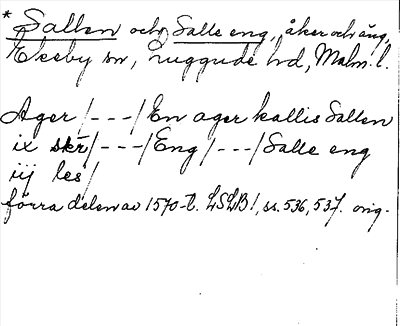 * Sallen och Salle eng, åker och äng,
Ekeby sn, Luggude hd, Malm. l.
Ager /---/ En ager kallis Sallen
ix skr /---/ Eng /---/ Salle eng
iij les /
förra delen av 1570-t. LSLB1, ss. 536, 537. orig.